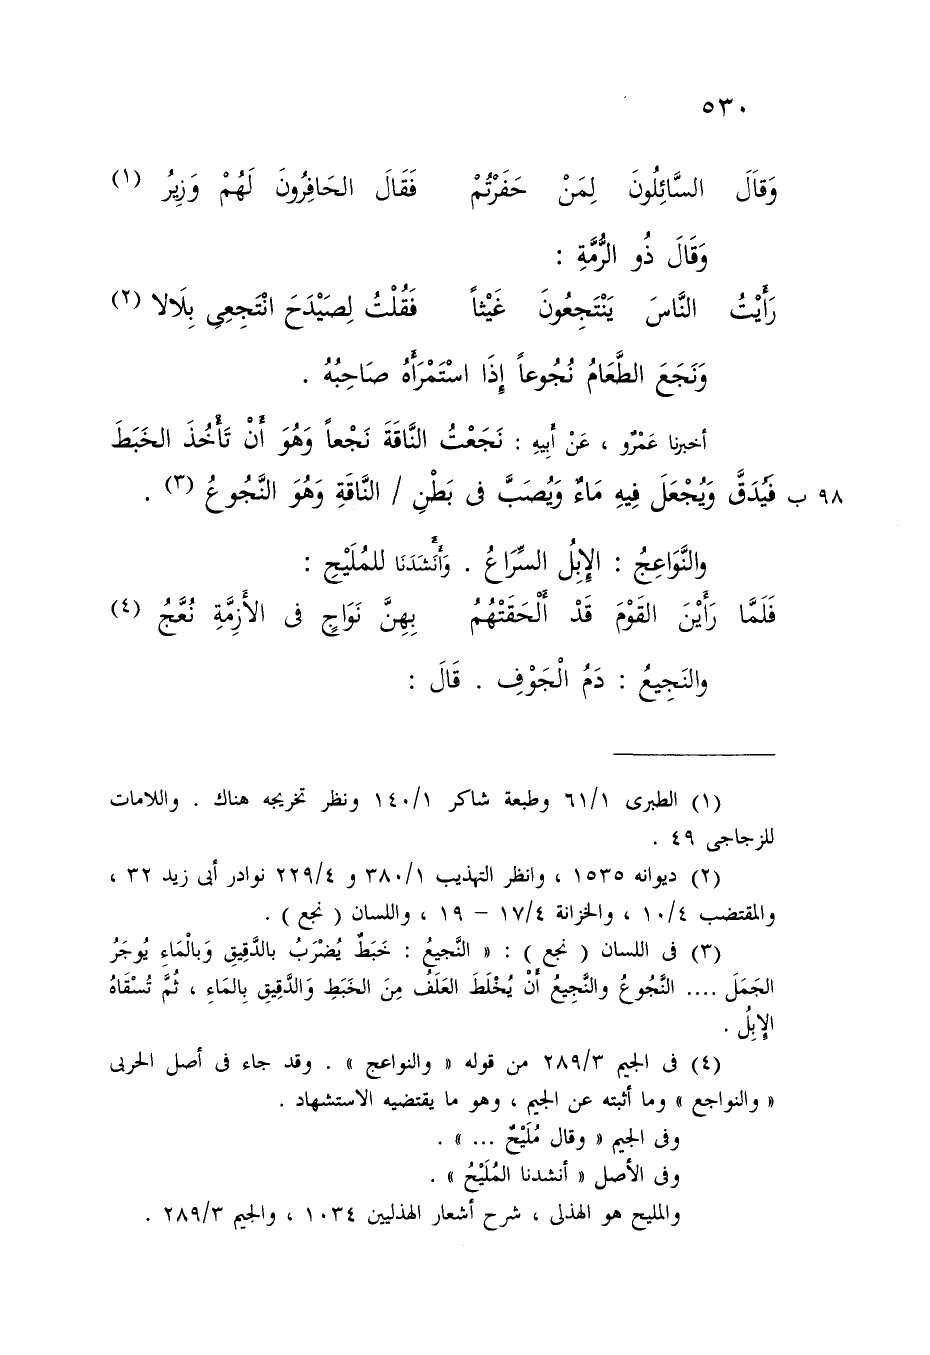 ٥٣٠
وَقَالَ السَّائِلُونَ لِمَنْ حَفَرْتُمْ فَقَالَ الحَافِرُونَ لَهُمْ وَزِيرُ (١)
وَقَالَ ذُو الرُّمَّةِ :
رَأَيْتُ النَّاسَ يَنْتَجِعُونَ غَيْثاً فَقُلْتُ لِصَيْدَحَ انْتَجِعِي بِلَالا (٢)
وَنَجَعَ الطَّعَامُ نُجُوعاً إِذَا اسْتَمْرَأَهُ صَاحِبُهُ .
أخبرنا عَمْرٌو ، عَنْ أَبِيهِ : نَجَعْتُ النَّاقَةَ نَجْعاً وَهُوَ أَنْ تَأْخُذَ الخَبَطَ
٩٨ ب فَيُدَقَّ وَيُجْعَلَ فِيهِ مَاءٌ وَيُصَبَّ فى بَطْنِ / النَّاقَةِ وَهُوَ النَّجُوعُ (٣) .
والنَّوَاعِجُ : الإِبِلُ السِّرَاعُ . وَأَنْشَدَنَا للمُلَيْحِ :
فَلَمَّا رَأَيْنَ القَوْمَ قَدْ أَلْحَقَتْهُمُ بِهِنَّ نَوَاجٍ فى الأَزِمَّةِ نُعَّجُ (٤)
والنَجِيعُ : دَمُ الْجَوْفِ . قَالَ :
(١) الطبرى ٦١/١ وطبعة شاكر ١٤٠/١ ونظر تخريجه هناك . واللامات
للزجاجى ٤٩ .
(٢) ديوانه ١٥٣٥ ، وانظر التهذيب ٣٨٠/١ و ٢٢٩/٤ نوادر أبى زيد ٣٢ ،
والمقتضب ١٠/٤ ، والخزانة ١٧/٤ – ١٩ ، واللسان ( نجع ) .
(٣) فى اللسان ( نجع ) : « النَّجيعُ : خَبَطٌ يُضْرَبُ بالدَّقِيقِ وَبالْمَاءِ يُوجَرُ
الجَمَلَ .... النَّجُوعُ والنَّجِيعُ أَنْ يُخْلَطَ العَلَفُ مِنَ الخَبَطِ وَالدَّقِيقِ بِالمَاءِ ، ثُمَّ تُسْقَاهُ
الإِبِلُ .
(٤) فى الجيم ٢٨٩/٣ من قوله « والنواعج » . وقد جاء فى أصل الحربى
« والنواجع » وما أثبته عن الجيم ، وهو ما يقتضيه الاستشهاد .
وفى الجيم « وقال مُلَيْحٌ ... » .
وفى الأصل « أنشدنا المُلَيْحُ » .
والمليح هو الهذلى ، شرح أشعار الهذليين ١٠٣٤ ، والجيم ٢٨٩/٣ .